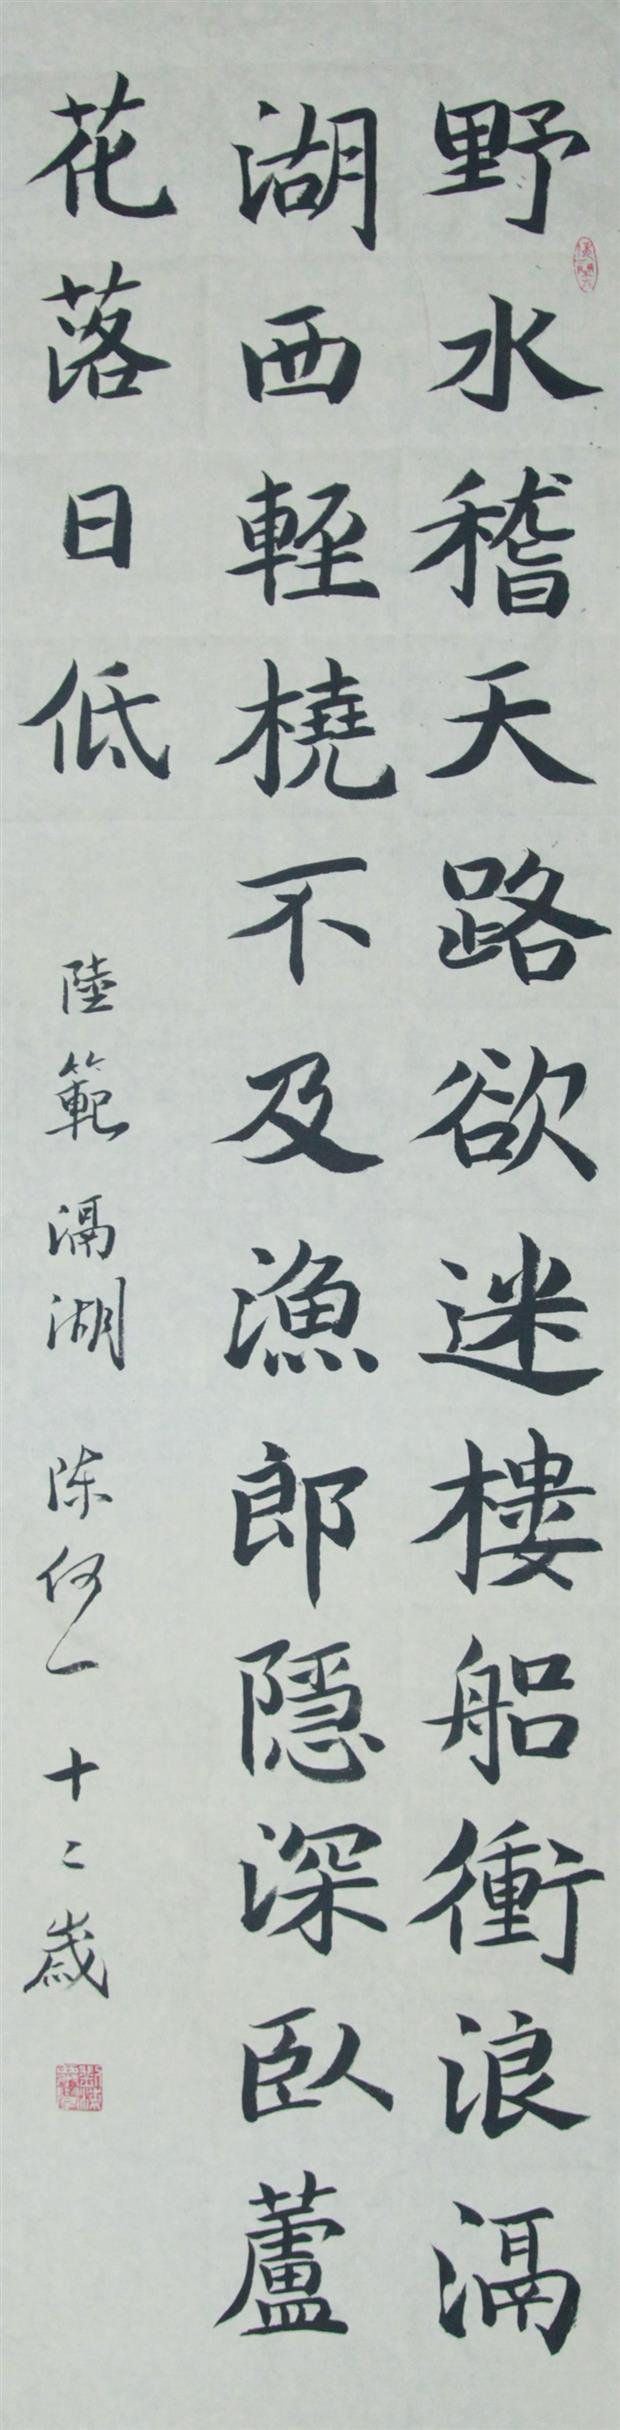 野水稽天路欲迷樓船衝浪滆
湖西輕橈不及漁郎隱深臥蘆
花落日低
陸範滆湖 陈何一 十二歲